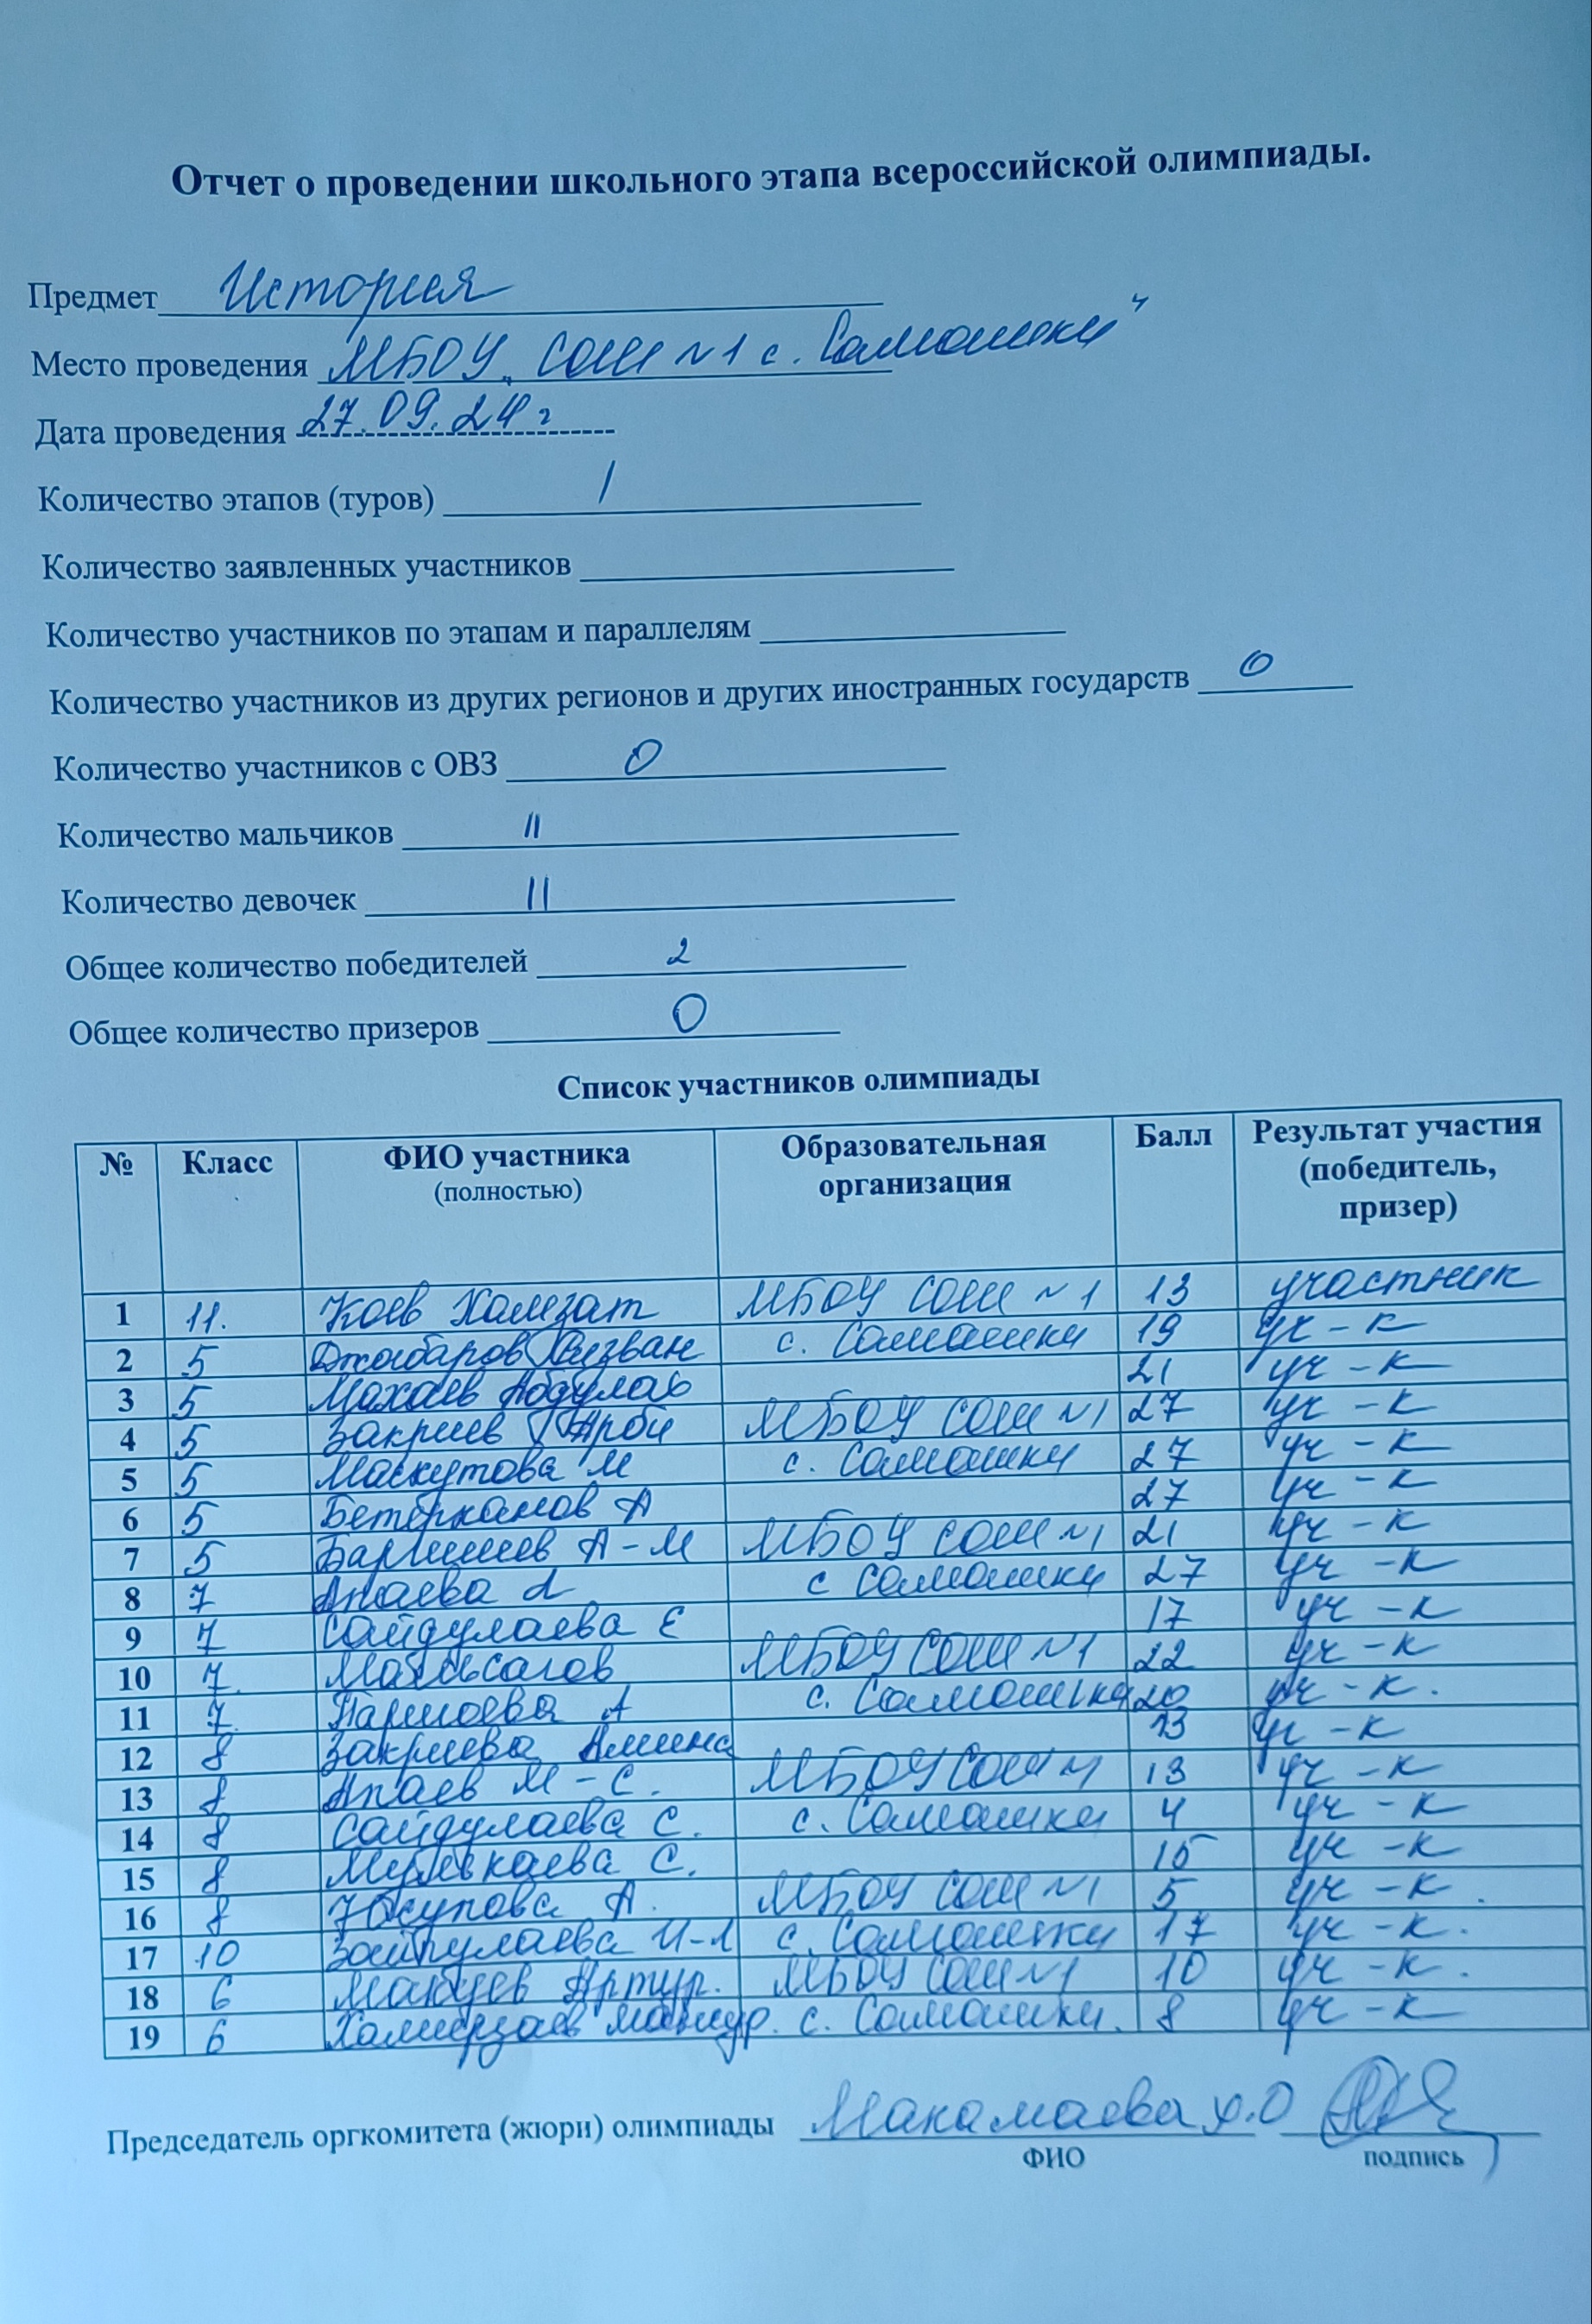 Отчет о проведении школьного этапа всероссийской олимпиады.
Предмет История
Место проведения МБОУ „СОШ №1 с. Самашки“
Дата проведения 27.09.24 г
Количество этапов (туров) 1
Количество заявленных участников
Количество участников по этапам и параллелям
Количество участников из других регионов и других иностранных государств 0
Количество участников с ОВЗ 0
Количество мальчиков 11
Количество девочек 11
Общее количество победителей 2
Общее количество призеров 0
Список участников олимпиады
№ Класс ФИО участника (полностью) Образовательная организация Балл Результат участия (победитель, призер)
1 11. Коев Хамзат МБОУ СОШ №1 13 участник
2 5 Джабаров Ризван с. Самашки 19 уч-к
3 5 Махаев 21 уч-к
4 5 Закриев Арби МБОУ СОШ №1 27 уч-к
5 5 Маскутова М с. Самашки 27 уч-к
6 5 А 27 уч-к
7 5 А-М МБОУ СОШ №1 21 уч-к
8 7 Апаева Л с Самашки 27 уч-к
9 7 Сайдулаева Е 17 уч-к
10 7. МБОУ СОШ №1 22 уч-к
11 7. А с. Самашки 20 уч-к.
12 8 Закриева Амина 13 уч-к
13 8 Апаев М-С. МБОУ СОШ №1 13 уч-к
14 8 Сайдулаева С. с. Самашки 4 уч-к
15 8 С. 15 уч-к
16 8 Юсупова А. МБОУ СОШ №1 5 уч-к.
17 10 с. Самашки 17 уч-к.
18 6 Артур. МБОУ СОШ №1 10 уч-к.
19 6 Хамерзаев с. Самашки. 8 уч-к
Председатель оргкомитета (жюри) олимпиады Макамаева Х.О
ФИО подпись